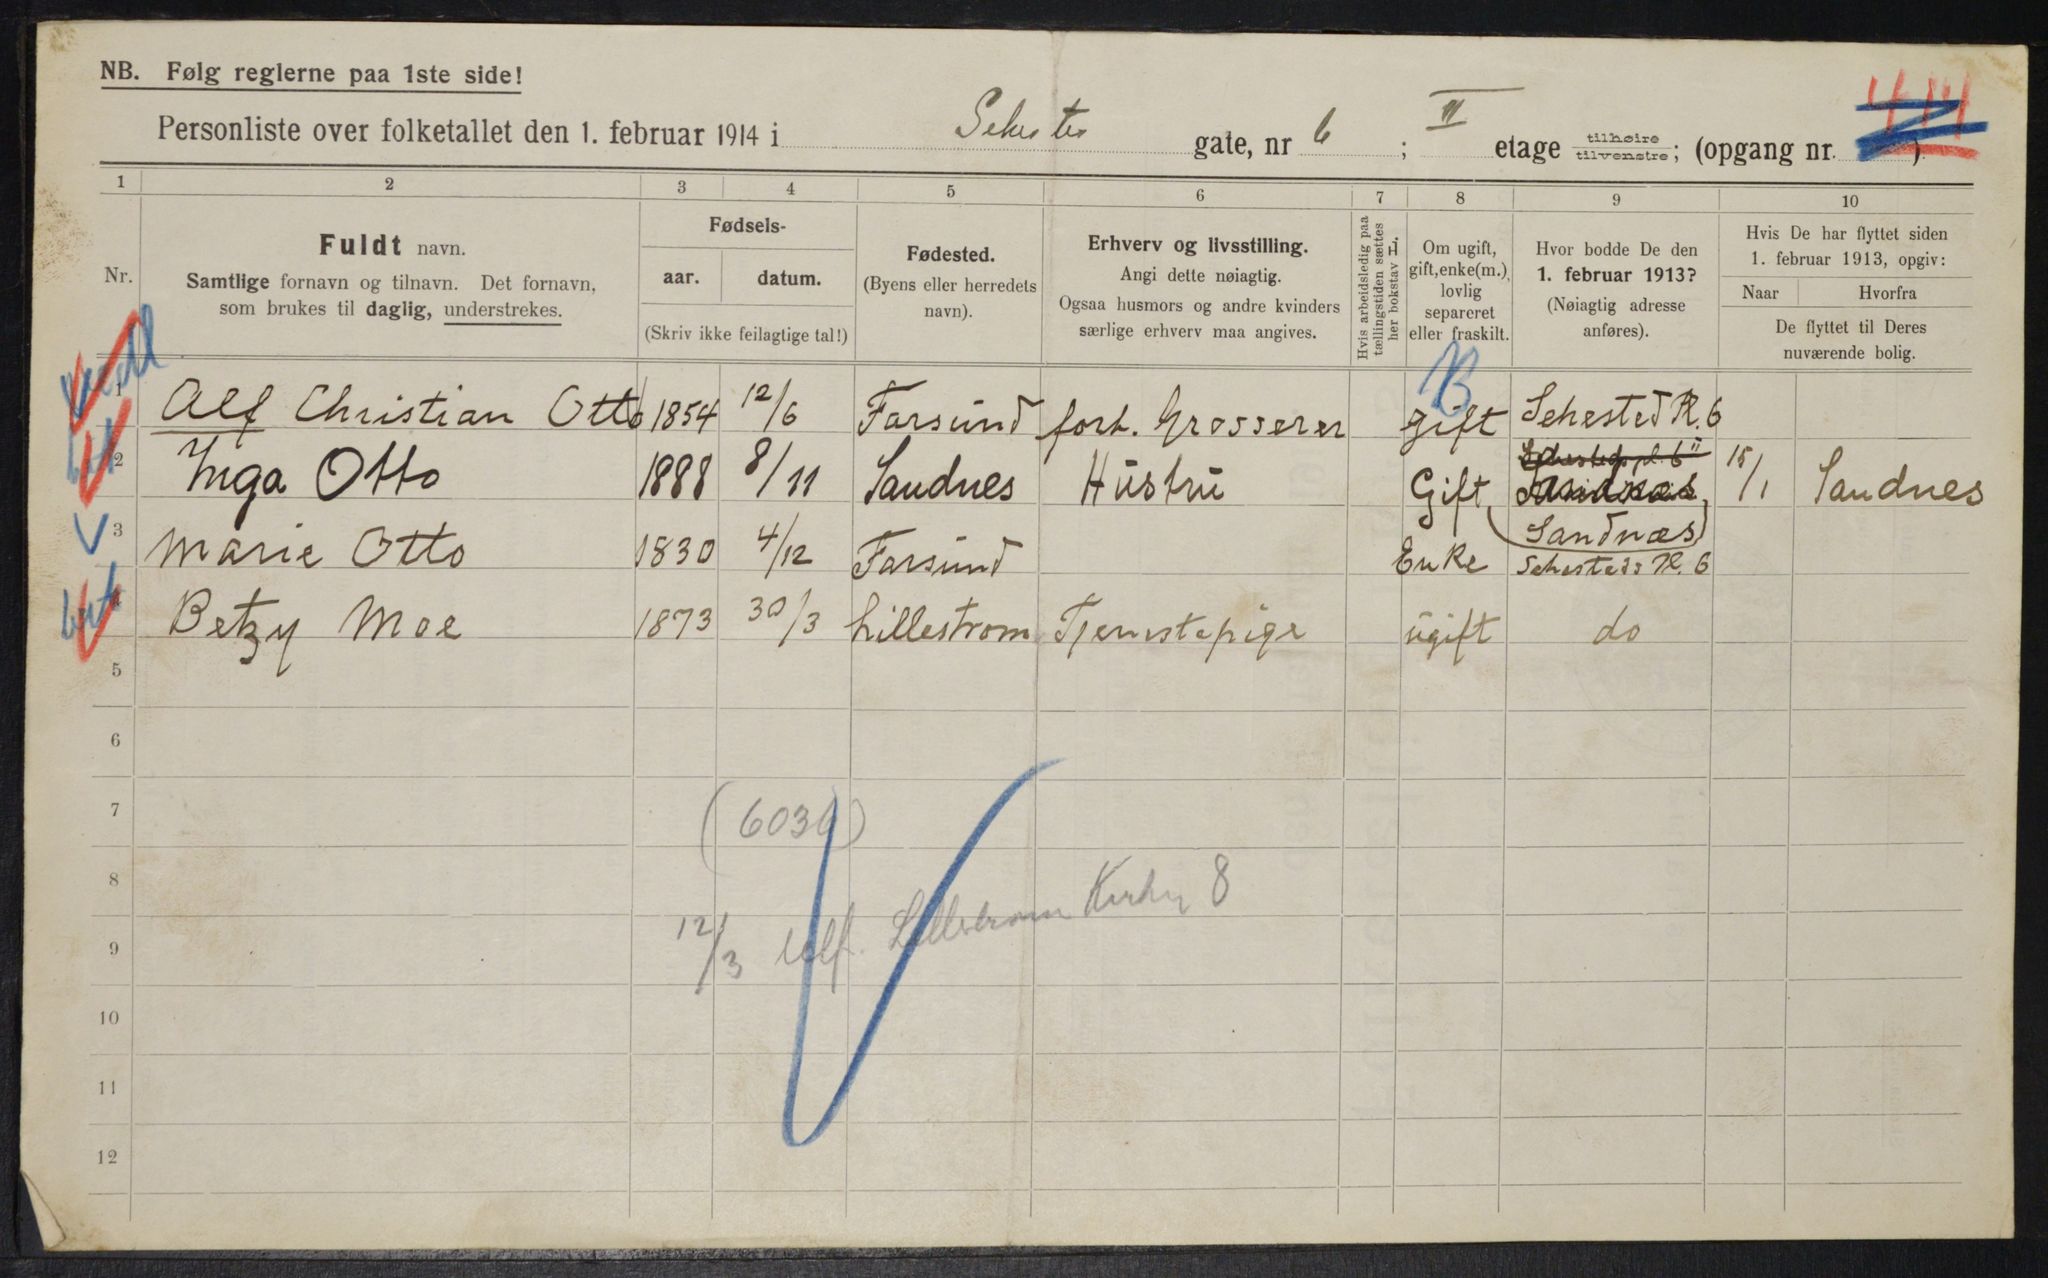 NB. Følg reglerne paa 1ste side!
Personliste over folketallet den 1. februar 1914 i Sehesteds gate, nr 6 ; II etage tilhøire tilvenstre; (opgang nr. )
1 2 3 4 5 6 7 8 9 10
Nr.
Fuldt navn.
Samtlige fornavn og tilnavn. Det fornavn,
som brukes til daglig, understrekes.
Fødsels-
aar. datum.
(Skriv ikke feilagtige tal!)
Fødested.
(Byens eller herredets
navn).
Erhverv og livsstilling.
Angi dette nøiagtig.
Ogsaa husmors og andre kvinders
særlige erhverv maa angives.
Hvis arbeidsledig paa
tællingstiden sættes
her bokstav H.
Om ugift,
gift, enke(m.),
lovlig
separeret
eller fraskilt.
Hvor bodde De den
1. februar 1913?
(Nøiagtig adresse
anføres).
Hvis De har flyttet siden
1. februar 1913, opgiv:
Naar Hvorfra
De flyttet til Deres
nuværende bolig.
B
1 Alf Christian Otto 1854 12/6 Farsund forh. Grosserer gift Sehested Pl. 6
2 Inga Otto 1888 8/11 Sandnes Hüstrü Gift Sandnæs 15/1 Sandnes
(Sandnæs)
3 Marie Otto 1830 4/12 Farsund Enke Sehesteds Pl. 6
4 Betzy Moe 1873 30/3 Lillestrom Tjenestepige ugift do
5
6
7
(6036)
8
12/3 Lillestrøm 8
9
10
11
12